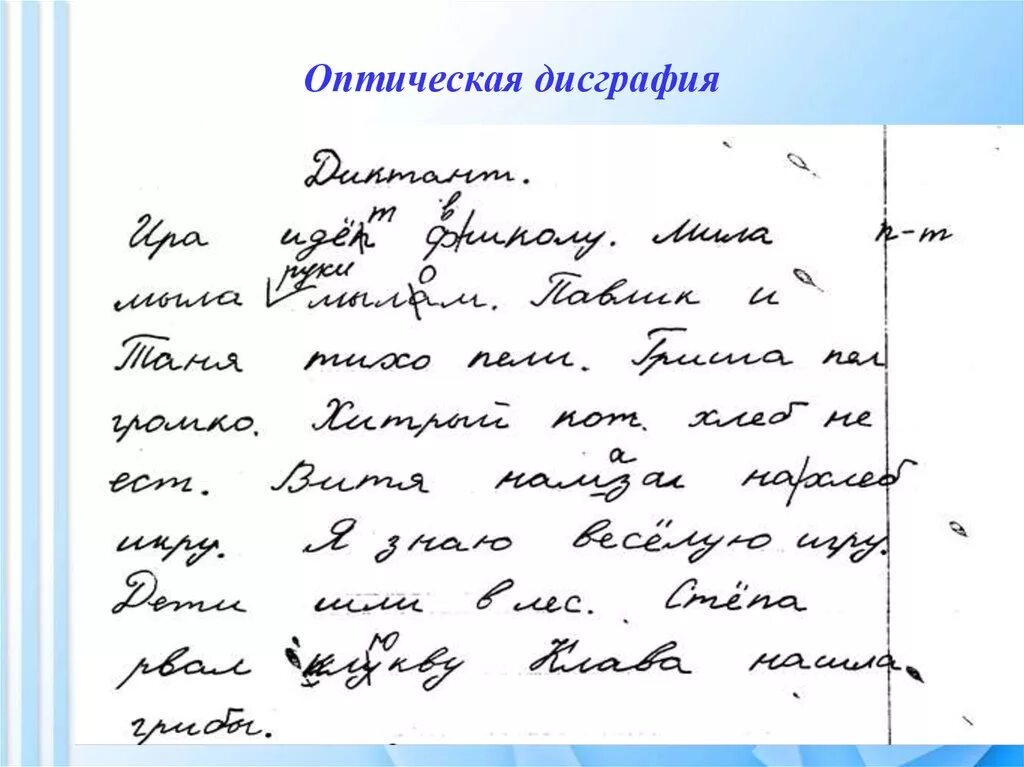 Оптическая дисграфия
Диктант.
т в
Ира идёп фшколу. Мила п-т
руки о
мыла мылам. Павлик и
Таня тихо пели. Гриша пел
громко. Хитрый кот. хлеб не
а
ест. Витя намзал нахлеб
икру. Я знаю весёлую игру.
Дети шли в лес. Стёпа
ю
рвал клукву Клава нашла
грибы.